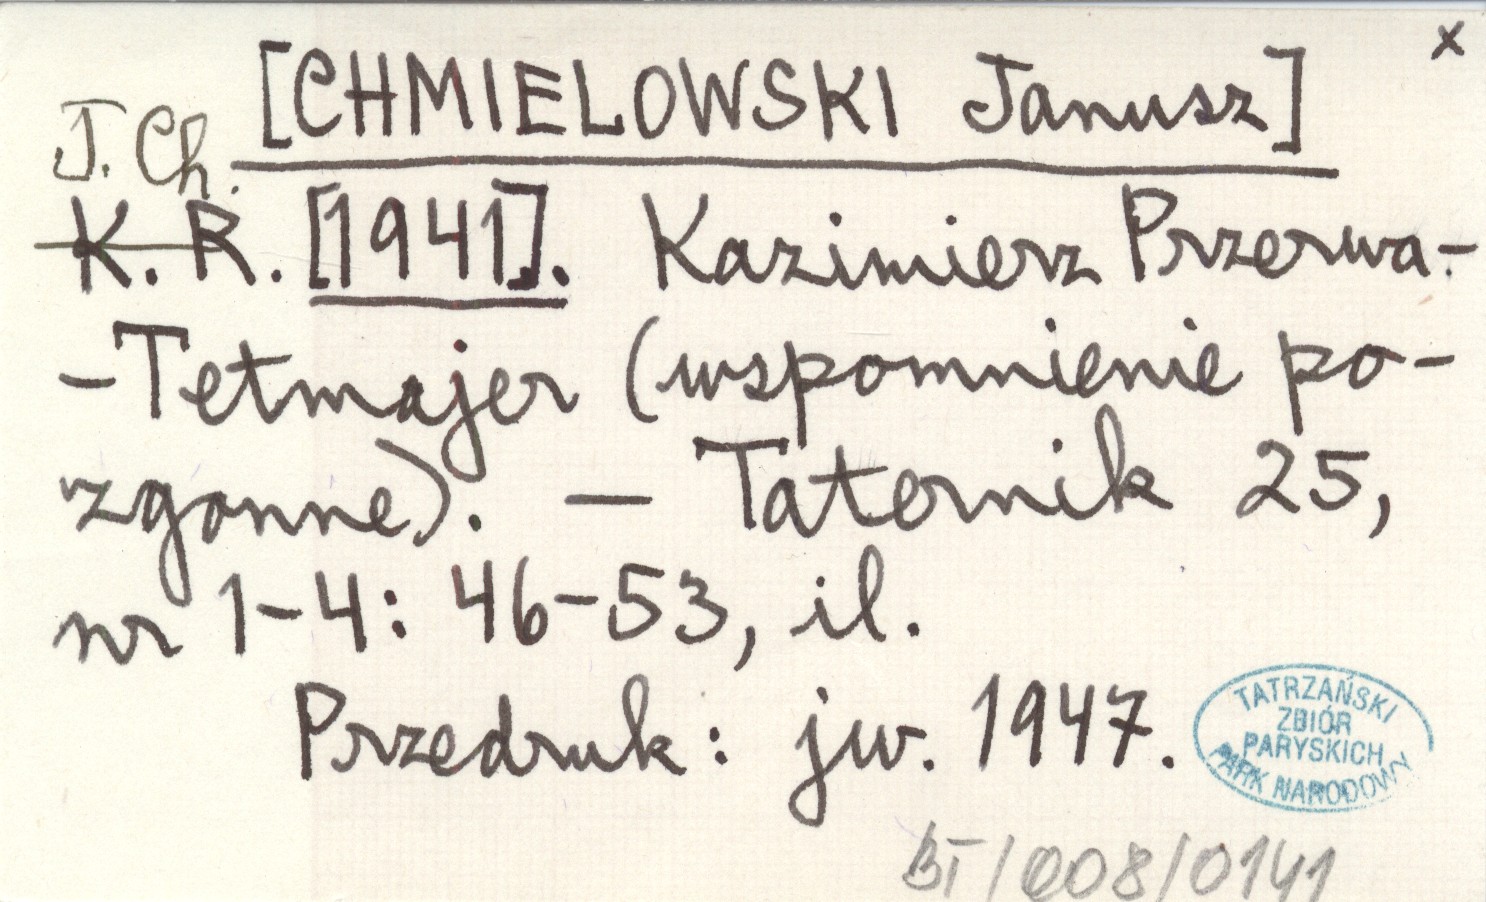 x
[CHMIELOWSKI Janusz]
J. Ch.
K. R. [1941]. Kazimierz Przerwa-
-Tetmajer (wspomnienie po-
zgonne). — Taternik 25,
nr 1-4: 46-53, il.
Przedruk: jw. 1947.
TATRZAŃSKI
ZBIÓR
PARYSKICH
PARK NARODOWY
BT/008/0141